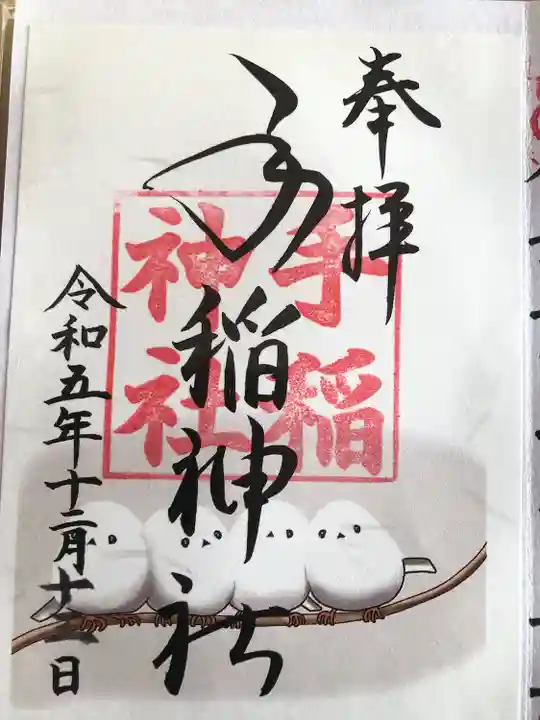 奉拝
手稲神社
手稲
神社
令和五年十二月十二日